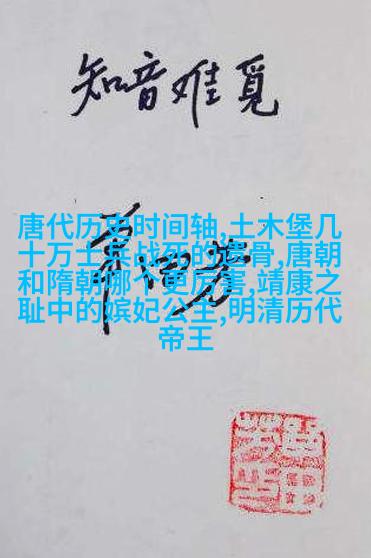 知音难觅
唐代历史时间轴,土木堡几
十万士兵战死的遗骨,唐朝
和隋朝哪个更厉害,靖康之
耻中的嫔妃公主,明清历代
帝王
单田芳